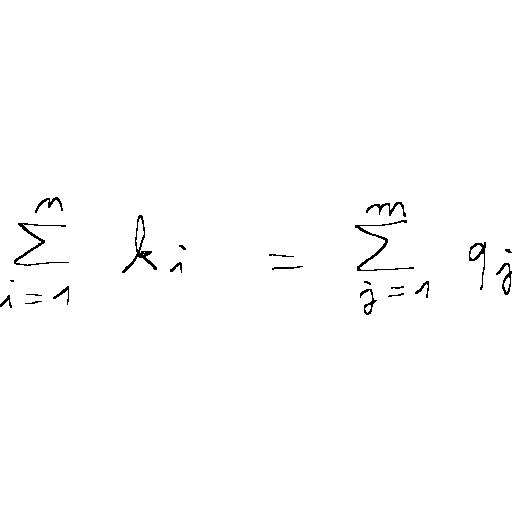 \sum_{i=1}^{n} k_i = \sum_{j=1}^{m} q_j